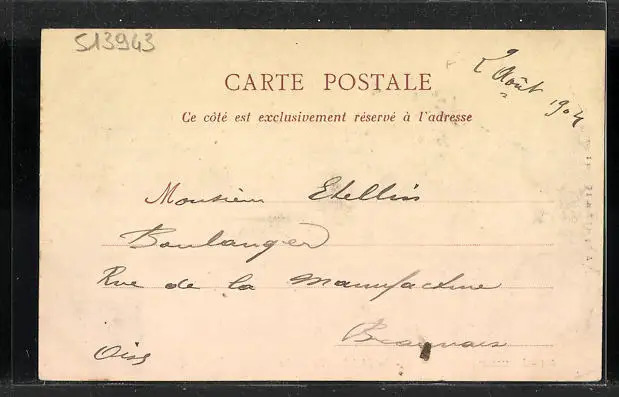 513943
CARTE POSTALE
2 Août 1904
Ce côté est exclusivement réservé à l'adresse
Monsieur
Boulanger
Rue de la Manufacture
Beauvais
Oise